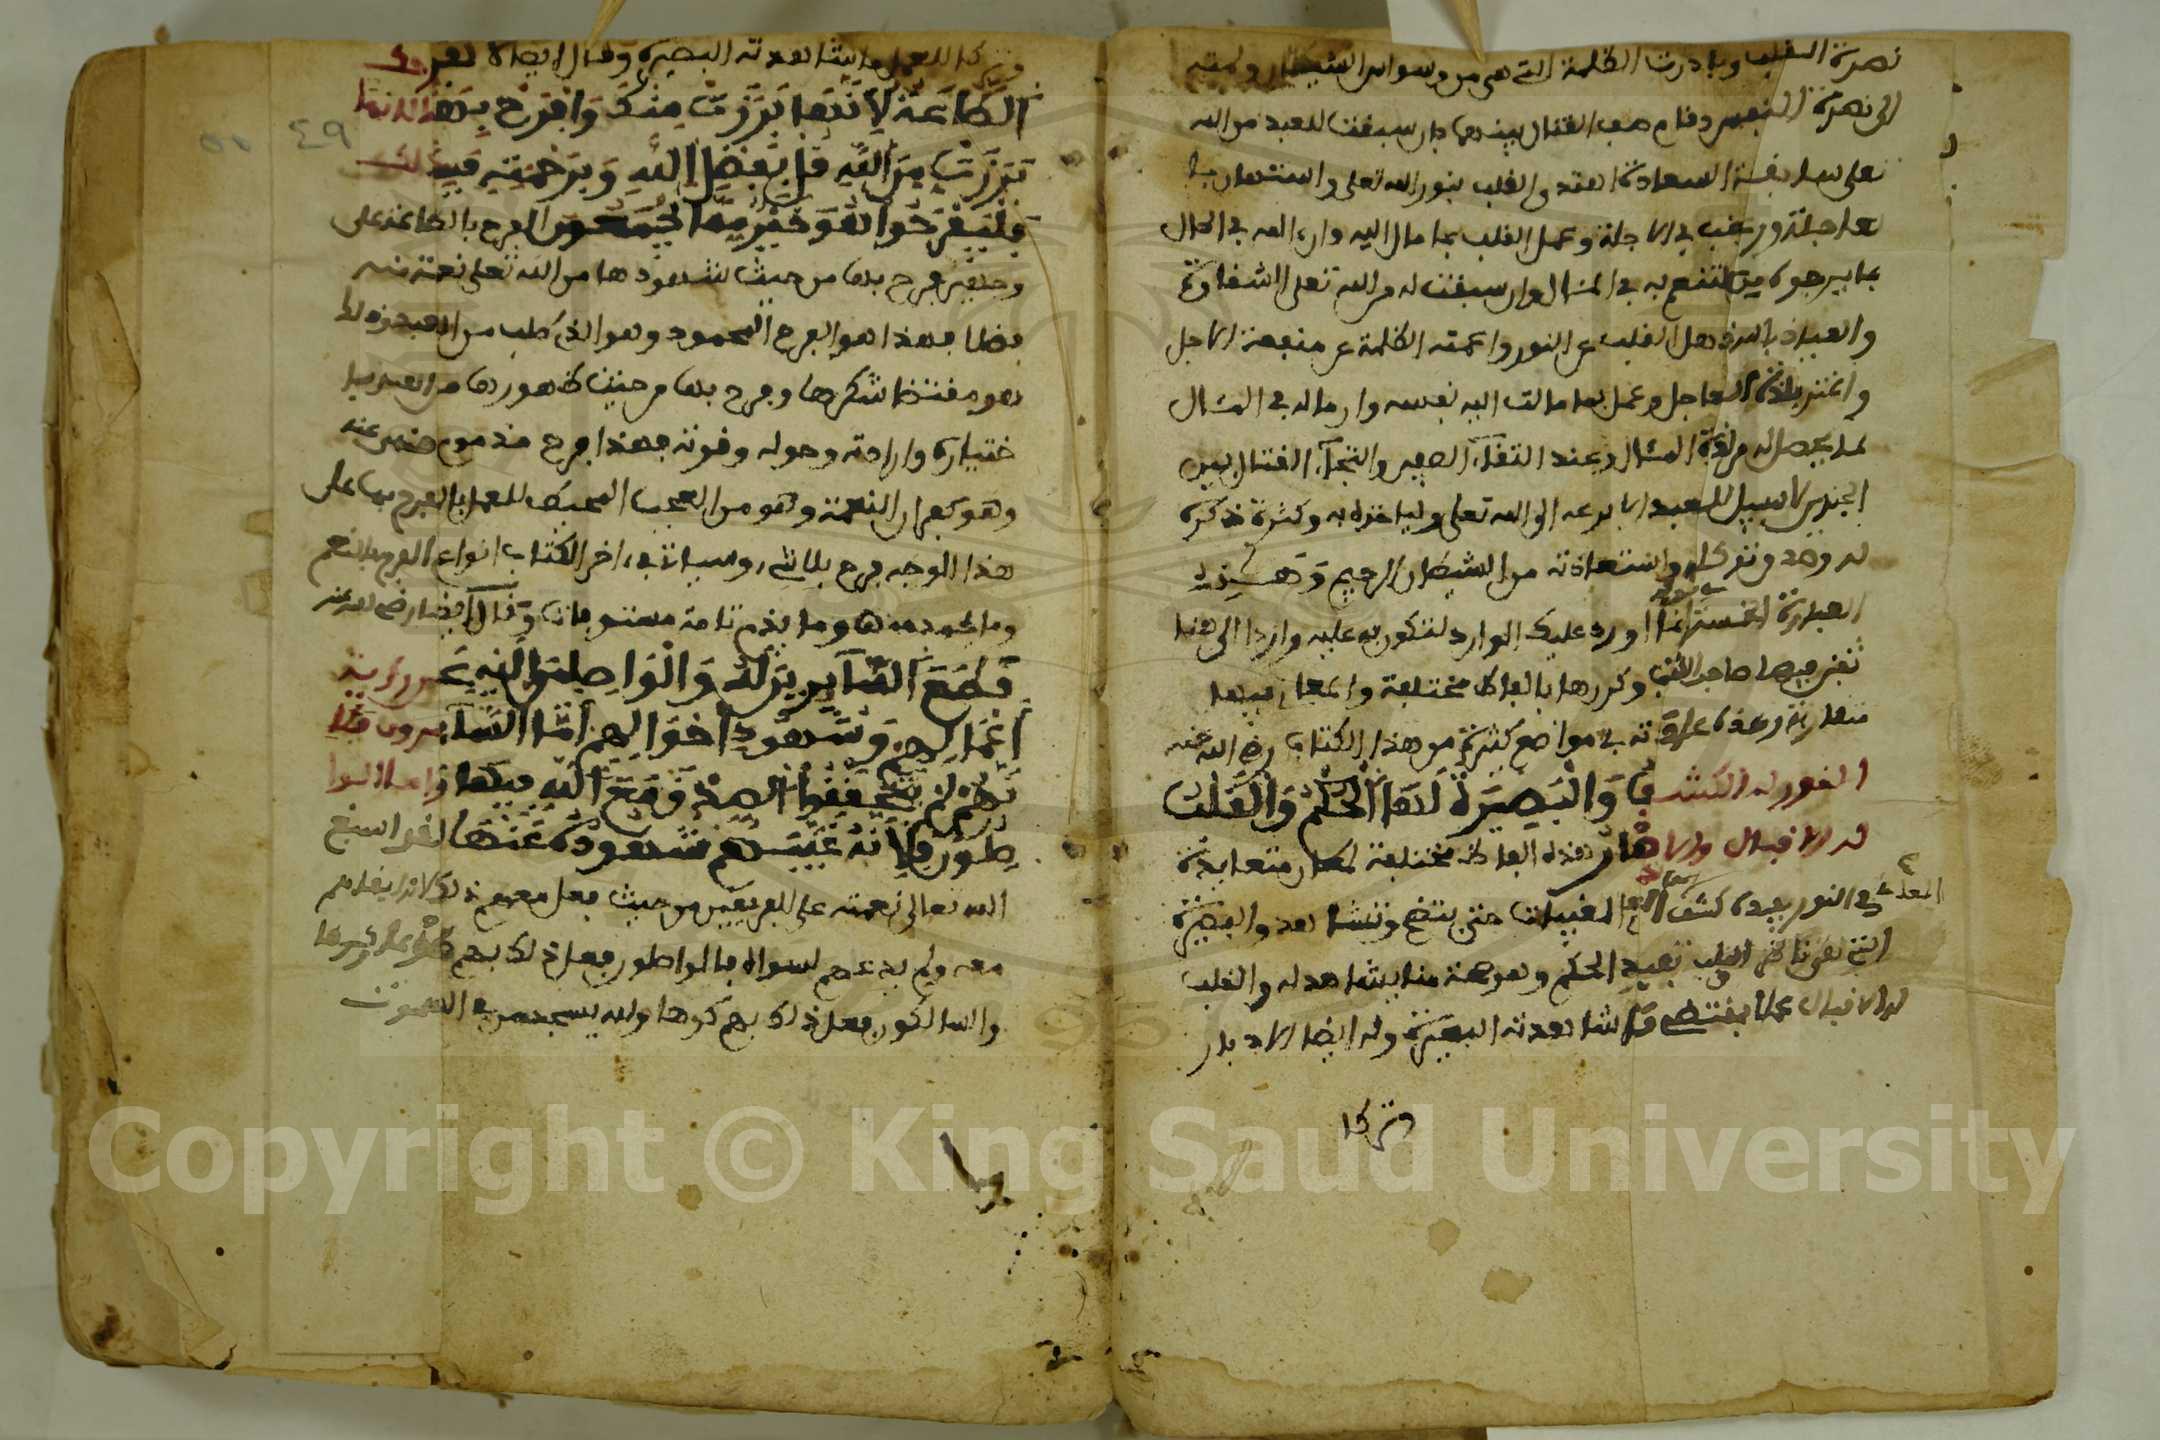 نصرة القلب وبادرت الظلمة التى هى من وسواس الشيطان ولمته
الى نصرة النفس وقام صف القتال بينهما فان سبقت للعبد من الله
تعلى سابقة السعادة اهتدى القلب بنور الله تعلى واستهان با
لعاجلة ورغب في الاجلة وعمل القلب بما مال اليه وان المه في الحال
بما يرجوه من التنعم به في المئال وان سبقت له من الله تعلى الشقاوة
والعياذ بالله ذهل القلب عن النور واعمته الظلمة عن منفعة الاجل
واغتر بلذة العاجل وعمل بما مالت اليه نفسه وان اله في المئال
لما يحصل له من لذة الحال وعند التقاء الصفين والتحام القتال بين
الجندين لا سبيل للعبد الا فزعه الى الله تعلى ولياذه به وكثرة ذكره
له وصدق توكله واستعاذته من الشيطان الرجيم وهذه
العبارة الخمسة انما اورد عليك الوارد لتكون به عليه واردا الى هنا
تفنن فيها صاحب الكتاب وكررها بالفاظ مختلفة والمعاني فيها
متقاربة وهذه عادته في مواضع كثيرة من هذا الكتاب رضى الله عنه
النور له الكشف وَالْبَصِيرَةُ لَهَا الْحُكْمُ وَالْقَلْبُ
له الاقبال والادبار هذه الفاظ مختلفة لمعان متغايرة
النور يفيده كشف المعاني المغيبات حتى يتضح وتشاهد والبصيرة
التي هي ناظر القلب تفيد الحكم وهو صحة ما يشاهد له والقلب
له الاقبال عملا بمقتضى ما شاهدته البصيرة وله ايضا الادبار
وتركا
وتركا للعمل بما شاهدته البصيرة وقال ايضا لا تفرحك
الطَّاعَةُ لِأَنَّهَا بَرَزَتْ مِنْكَ وَافْرَحْ بِهَا لانها
بَرَزَتْ مِنَ اللَّهِ قُلْ بِفَضْلِ اللَّهِ وَبِرَحْمَتِهِ فَبِذَلِكَ
فَلْيَفْرَحُوا هُوَ خَيْرٌ مِمَّا يَجْمَعُونَ الفرح بالطاعة على
وجهين فرح بها من حيث شهودها من الله تعلى نعمة منه
وفضلا فهذا هو الفرح المحمود وهو الذي طلب من العبد وذلك
هو مقتضا شكرها وفرح بها من حيث ظهورها من العبد با
ختياره وارادته وحوله وقوته فهذا فرح مذموم منهى عنه
وهو كفران النعمة وهو من العجب المحبط للعمل بالفرح بها على
هذا الوجه فرح بلا شىء وسياتى في اخر الكتاب انواع الفرح بالنعم
وما يحمد منها وما يذم تامة مستوفات وقال ايضا رضى الله عنه
قَطَعَ السَّآئِرِينَ لَهُ وَالْوَاصِلِينَ إِلَيْهِ عَن رؤية
أَعْمَالِهِمْ وَشُهُودِ أَحْوَالِهِمْ أَمَّا السَّآئرون فلا
نَّهُمْ لَمْ يَتَحَقَّقُوا الصِّدْقَ مَعَ اللَّهِ فِيهَا واما الوا
صِلُونَ فَلِأَنَّهُ غَيَّبَهُمْ بشُهُودِهِ عَنْهَا لقد اسبغ
الله تعالى نعمته على الفريقين من حيث فعل معهم ذلك لانه ابقاهم
معه ولم يدعهم لسواه فالواصلون فعل ذلك بهم طوعا
والسالكون فعل ذلك بهم كرها ولله يسجد من في السموات
٤٩